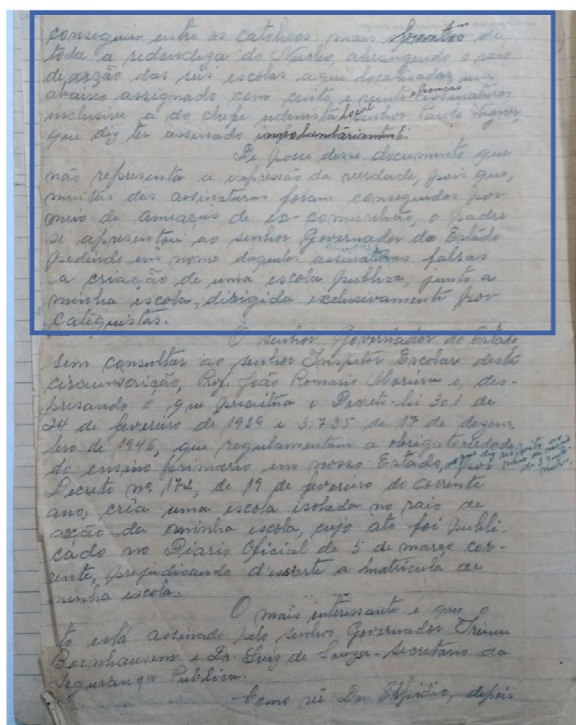 conseguiu entre os catholicos, mais de
toda a redondeza do Nucleo, abrangendo o raio
de acção das seis escolas aqui localisadas, um
abaixo assignado com cento e vinte assinaturas
inclusive a do chefe udenista local senhor Paulo Wagner,
que diz ter assinado involuntáriamente.
De posse desse documento que
não representa a expressão da verdade, pois que,
muitas das assinaturas foram conseguidas por
meio de ameaças de ex-comunhão, o padre
se apresentou ao senhor Governador do Estado
pedindo em nome daquelas assinaturas falsas
a criação de uma escola publica, junto a
minha escola, dirigida exclusivamente por
catiquistas.
O senhor Governador do Estado
sem consultar ao senhor Inspetor Escolar desta
circunscrição, Prof. João Romario Moreira e, des-
presando o que preceitua o Decreto-lei 301 de
24 de fevereiro de 1939 e 3.735 de 17 de dezem-
bro de 1946, que regulamentam a obrigatoriedade
do ensino primario em nosso Estado, no que diz respeito ao por
Decreto nº 172, de 19 de fevereiro do corrente
ano, cria uma escola isolada no raio de
acção da minha escola, cujo ato foi publi-
cado no Diario Oficial de 5 de março cor-
rente, prejudicando d'essarte a matricula de
minha escola.
O mais interessante é que o
to está assinado pelo senhor Governador Irineu
Bornhausem e Dr. Luiz de Souza - Secretário da
Segurança Publica.
Como vê Dr. Elpidio, depois